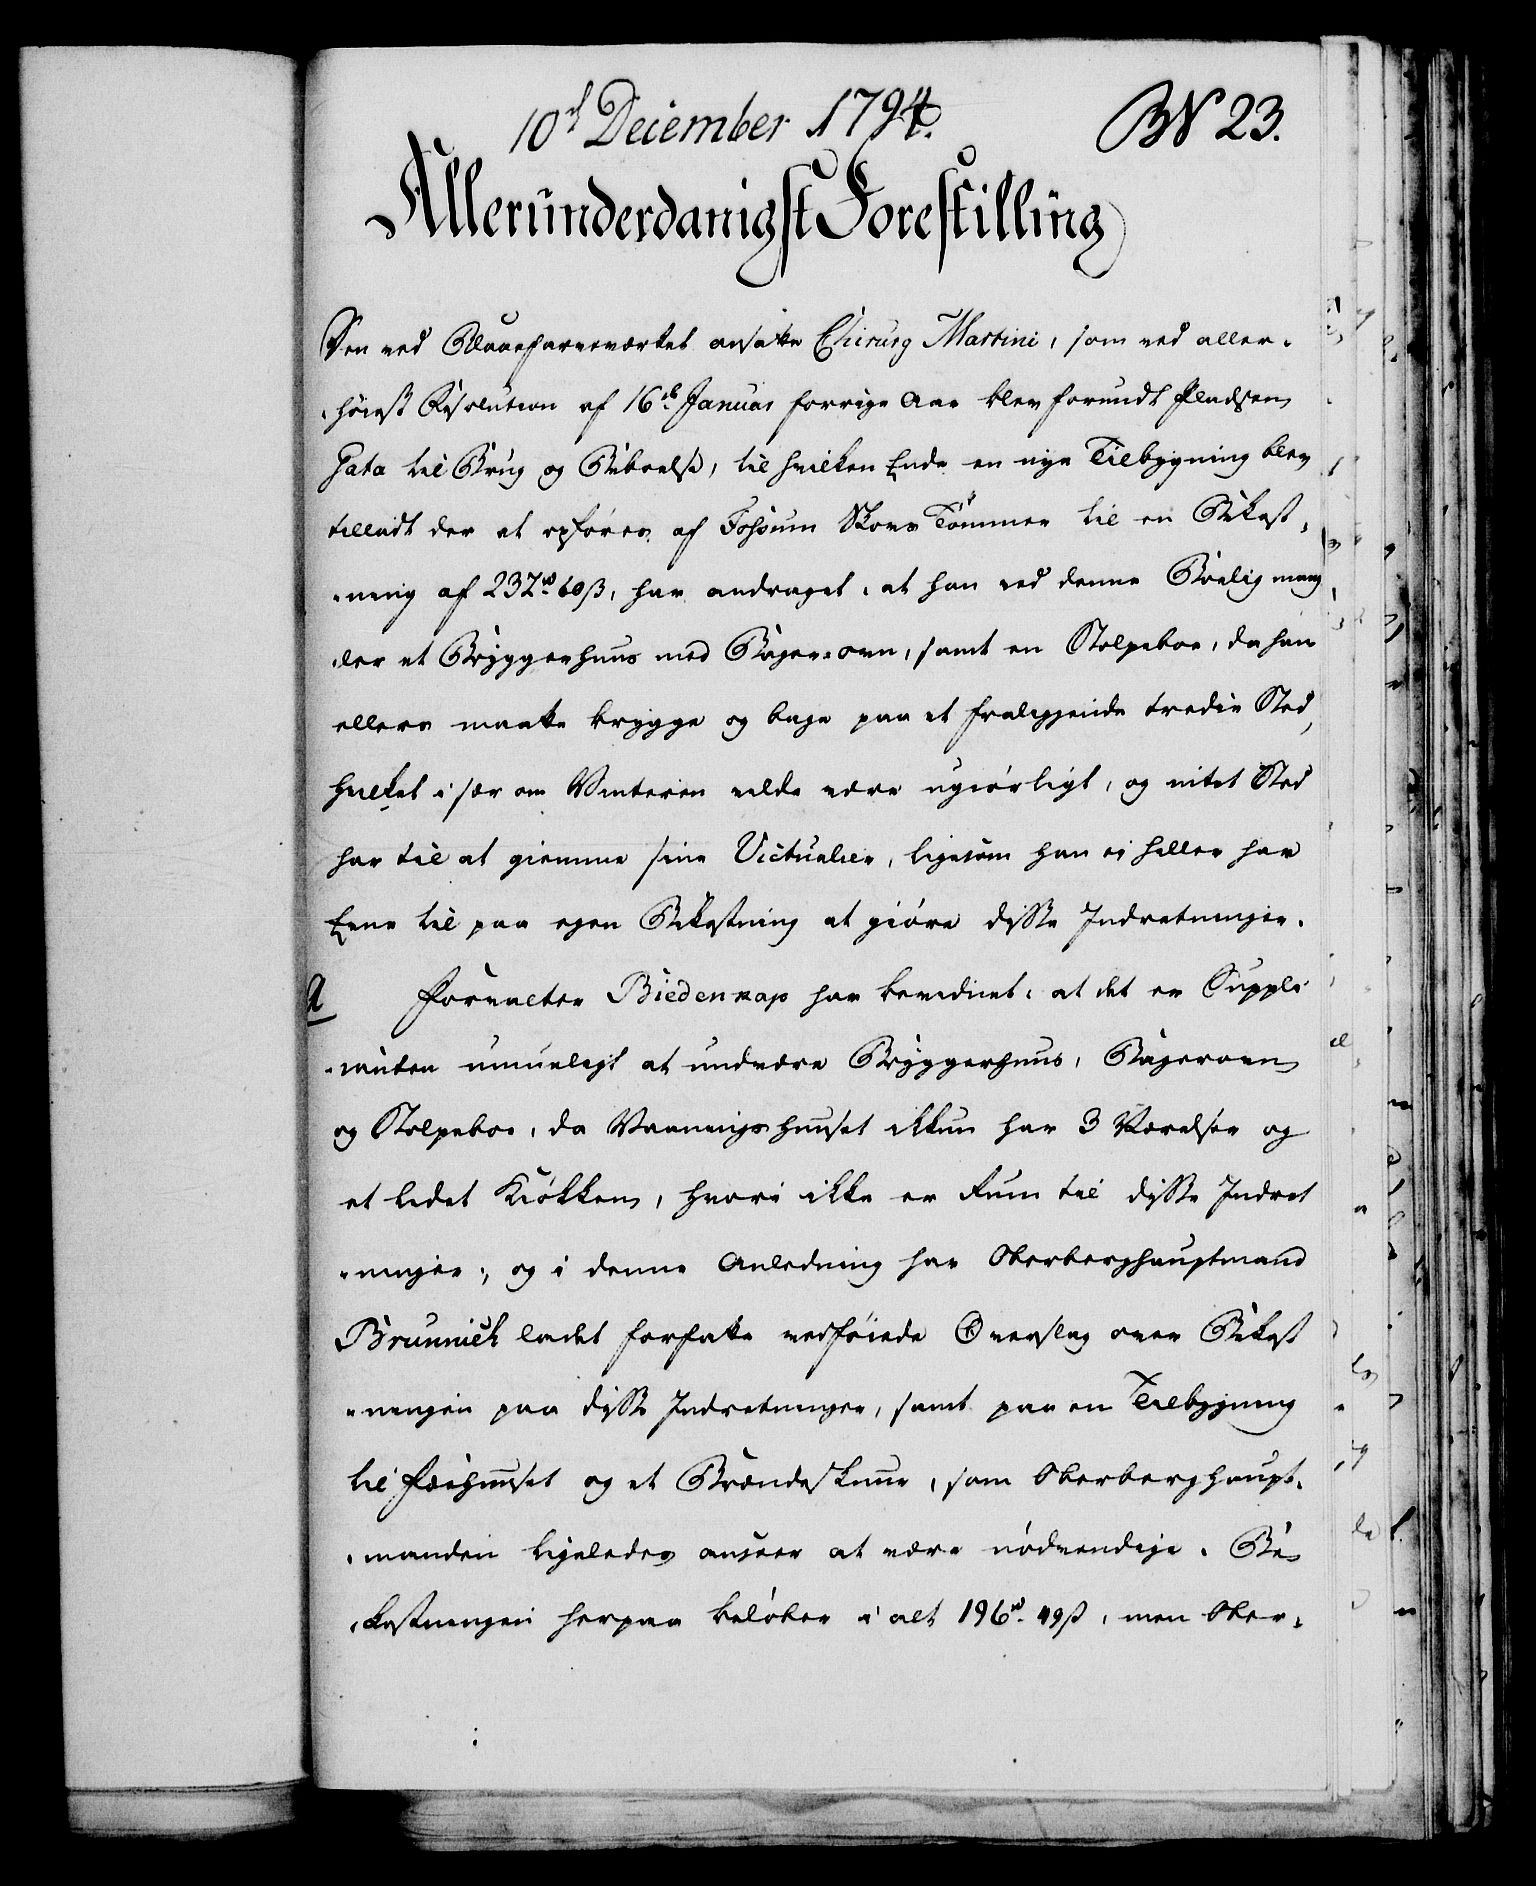 10de December 1794. BN 23.
Allerunderdanigst Forestilling
Den ved Blaaefarveværket ansatte Chirurg Martini, som ved aller-
-høiest Resolution af 16de Januar forrige Aar blev forundt Pladsen
Gata til Brug og Beboelse, til hvilken Ende en nye Tilbygning blev
tilladt der at opføres af Fossum Skovs Tømmer til en Bekost-
-ning af 232 rd 60 ß, har andraget, at han ved denne Boelig mang
-ler et Bryggerhuus med Bager-ovn, samt en Stolpeboe, da han
ellers maatte brygge og bage paa et fraliggende tredie Sted,
hvilket i sær om Vinteren vilde være ugiørligt, og intet Sted
har til at giemme sine Victualier, ligesom han ei heller har
Evne til paa egen Bekostning at giøre disse Indretninger.
A Forvalter Biedenkap har berettet, at det er Suppli-
-canten umueligt at undvære Bryggerhuus, Bagerovn
og Stolpeboe, da Vaaningshuuset ikkun har 3 Værelser og
et lidet Kiøkken, hvori ikke er Rum til disse Indret
-ninger; og i denne Anledning har Oberberghauptmand
Brünnich ladet forfatte vedføiede Overslag over Bekost
-ningen paa disse Indretninger, samt paa en Tilbygning
til Fæehuuset og et Brændeskuur, som Oberberghaupt-
-manden ligeledes anseer at være nødvendige. Be-
-kostningen herpaa beløber i alt 196 rd. 49 ß, men Ober-